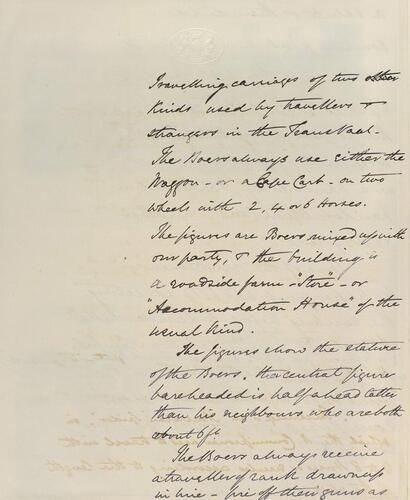 Travelling carriages of two other
Kinds used by travellers &
strangers in the TransVaal.
The Boers always use Either the
Waggon - or a Cape Cart - on two
wheels with 2, 4 or 6 Horses.
The figures are Boers mixed up with
our party, & the building is
a roadside farm - "Store" - or
"Accommodation House" of the
usual Kind.
The figures show the stature
of the Boers. The central figure
bareheaded is half a head taller
than his neighbours who are both
about 6ft
The Boers always receive
a traveller of rank drawn up
in line - fire off their guns as